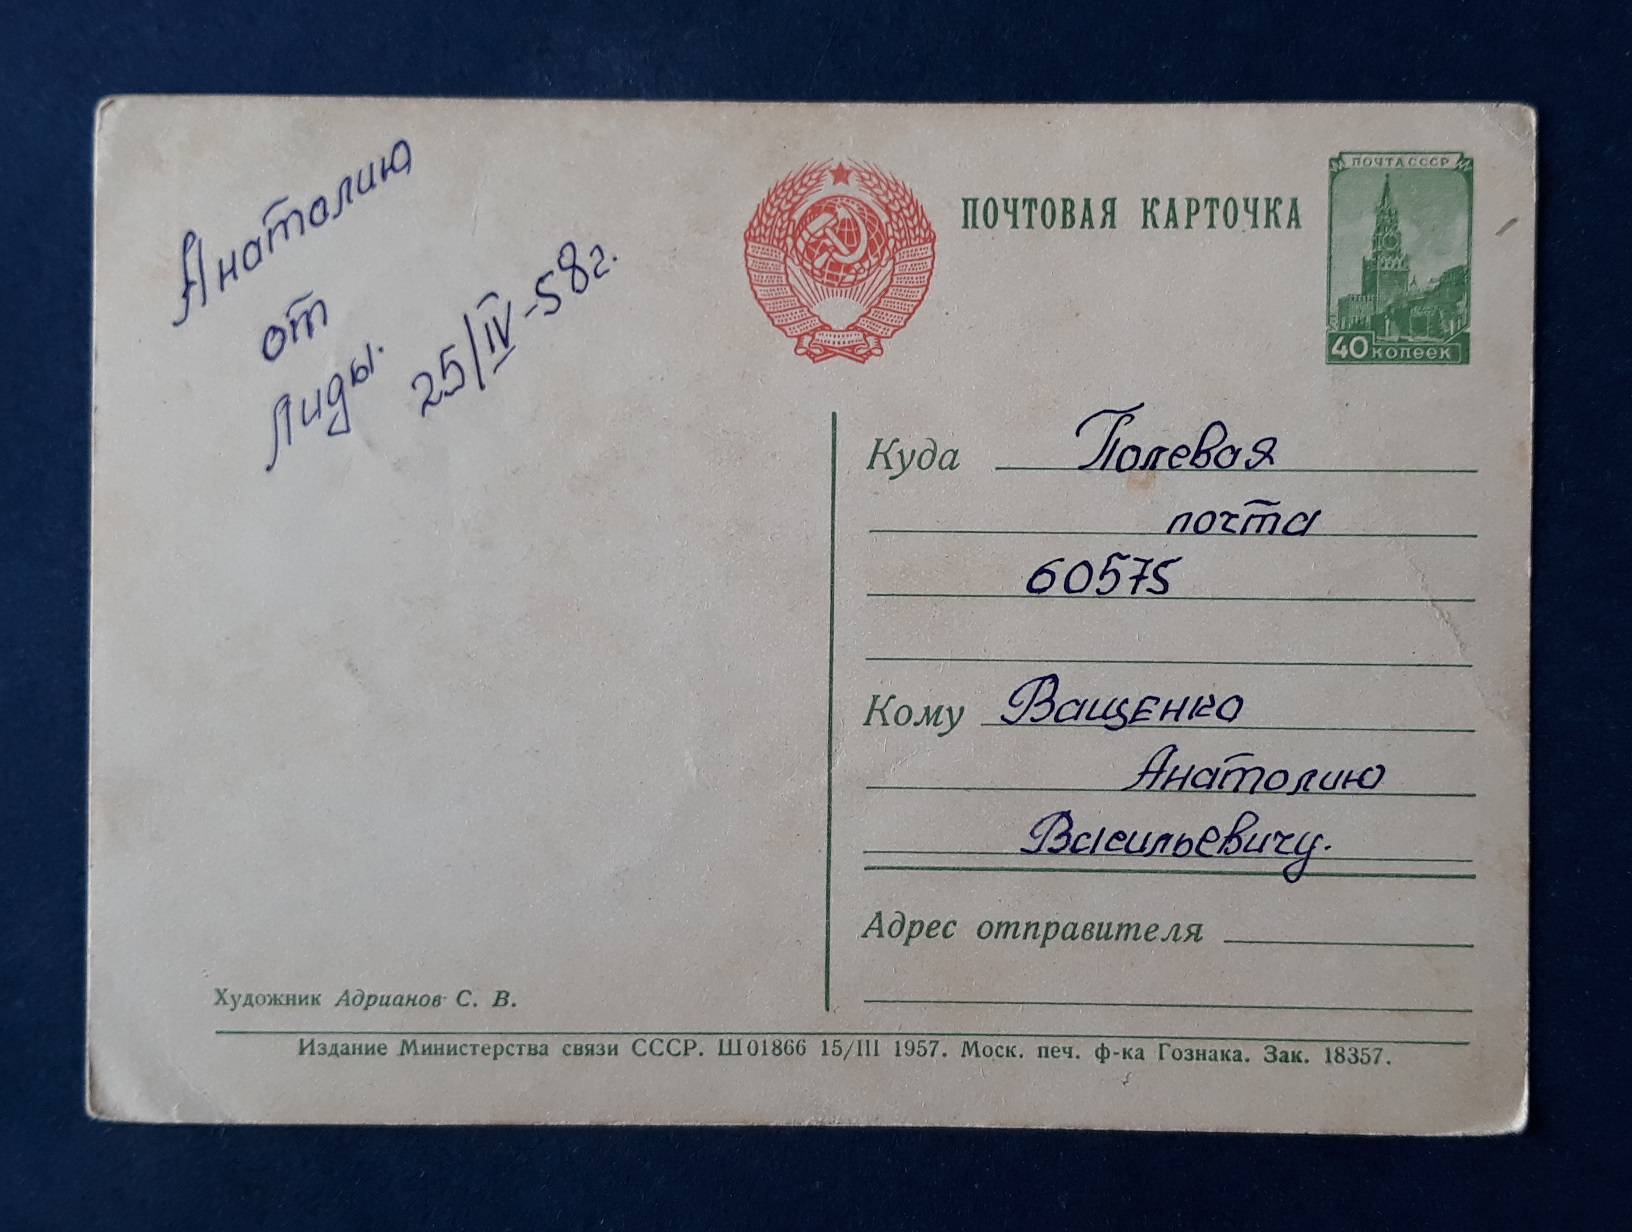 Анатолию
от
Лиды.
25/IV-58г.
ПОЧТОВАЯ КАРТОЧКА
ПОЧТА СССР
40 копеек
Куда Полевая
почта
60575
Кому Ващенко
Анатолию
Васильевичу.
Адрес отправителя
Художник Адрианов С. В.
Издание Министерства связи СССР. Ш01866 15/III 1957. Моск. печ. ф-ка Гознака. Зак. 18357.